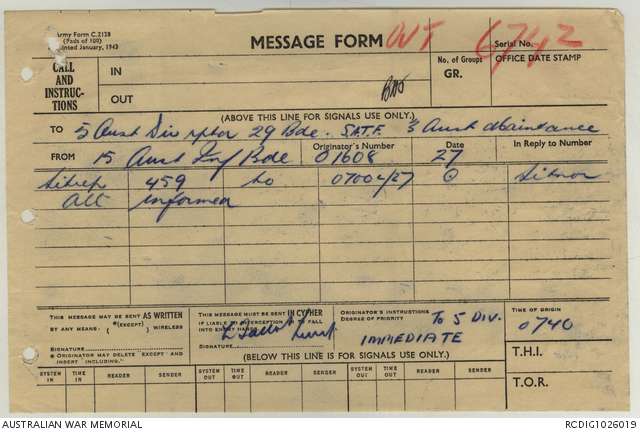 Army Form C.2128
(Pads of 100)
January, 1943
MESSAGE FORM
OUT
6742
Serial No.
CALL AND INSTRUCTIONS
IN
OUT
No. of Groups
GR.
OFFICE DATE STAMP
(ABOVE THIS LINE FOR SIGNALS USE ONLY.)
TO 5 Aust Div rptd 29 Bde. 3 Aust
FROM 15 Aust Inf Bde
Originator's Number
O1608
Date
27
In Reply to Number
Sitrep 459 to 0700L/27 ⊙ Sitnor
All informed
THIS MESSAGE MAY BE SENT AS WRITTEN
BY ANY MEANS. (*(EXCEPT) ) WIRELESS
SIGNATURE
* ORIGINATOR MAY DELETE EXCEPT AND
INSERT INCLUDING."
THIS MESSAGE MUST BE SENT IN CYPHER
IF LIABLE TO INTERCEPTION TO FALL
INTO ENEMY HANDS
SIGNATURE
Lieut
ORIGINATOR'S INSTRUCTIONS
DEGREE OF PRIORITY
To 5 DIV.
IMMEDIATE
TIME OF ORIGIN
0740
T.H.I.
T.O.R.
(BELOW THIS LINE IS FOR SIGNALS USE ONLY.)
SYSTEM IN TIME IN READER SENDER SYSTEM OUT TIME OUT READER SENDER SYSTEM OUT TIME OUT READER SENDER
AUSTRALIAN WAR MEMORIAL
RCDIG1026019